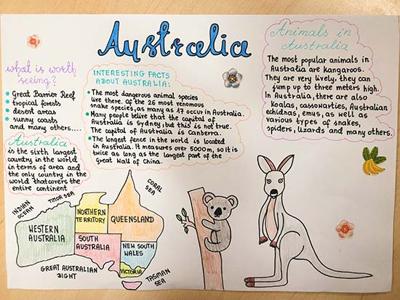 Australia
what is worth
seeing?
Great Barrier Reef
tropical forests
desert areas
sunny coasts
and many others....
Australia
is the sixth largest
country in the world
in terms of area and
the only country in the
world that covers the
entire continent
INTERESTING FACTS
ABOUT AUSTRALIA:
The most dangerous animal species
live there. Of the 25 most venomous
snake species, as many as 17 occur in Australia.
Many people belive that the capital of
Australia is Sydney, but this is not true.
The capital of Australia is Canberra.
The longest fence in the world is located
in Australia. It measures over 5000m, so it is
twice as long as the largest part of the
great Wall of China.
Animals in
Australia
The most popular animals in
Australia are kangaroos.
They are very lively, they can
jump up to three meters high.
In Australia, there are also
koalas, cassowaries, Australian
echidnas, emus, as well as
various types of snakes,
spiders, lizards and many others.
INDIAN
OCEAN
TIMOR SEA
CORAL
SEA
NORTHERN
TERRITORY
QUEENSLAND
WESTERN
AUSTRALIA
SOUTH
AUSTRALIA
NEW SOUTH
WALES
VICTORIA
GREAT AUSTRALIAN
BIGHT
TASMAN
SEA